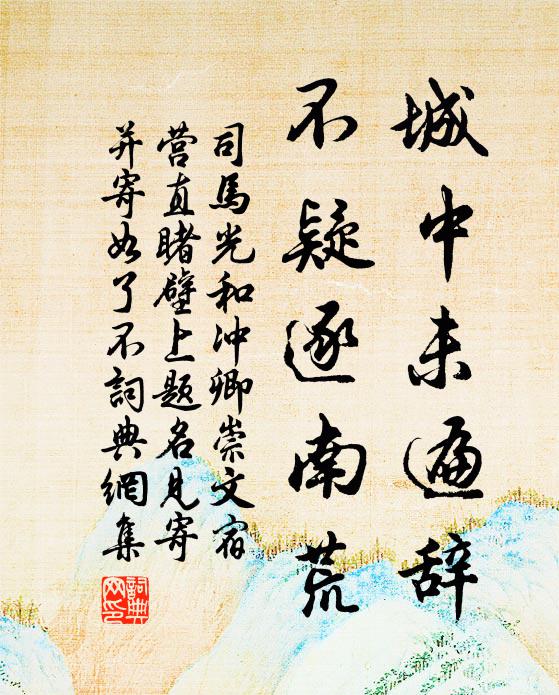 城中未遍辞
不疑逐南荒
司馬光和冲卿崇文宿
营直睹壁上题名见寄
并寄如了不詞典網集
詞典
网印